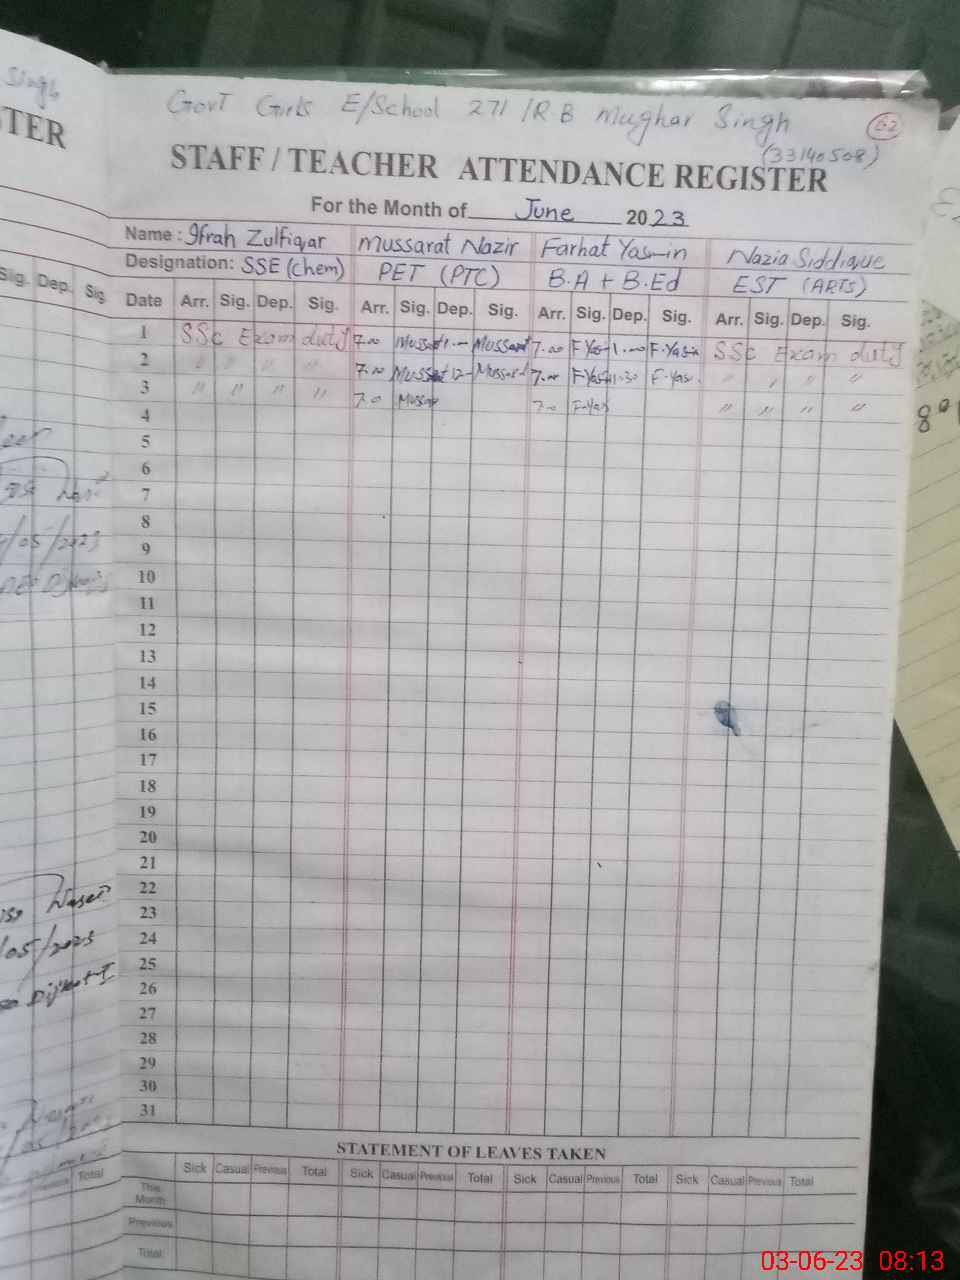 Singh
TER
Govt Girls E/School 271/R.B Mughar Singh
(33140508)
STAFF / TEACHER ATTENDANCE REGISTER
For the Month of June 2023
Name : Ifrah Zulfiqar Mussarat Nazir Farhat Yasmin Nazia Siddique
Designation: SSE (Chem) PET (PTC) B.A + B.Ed EST (ARTS)
Sig. Dep. Sig
Date Arr. Sig. Dep. Sig. Arr. Sig. Dep. Sig. Arr. Sig. Dep. Sig. Arr. Sig. Dep. Sig.
1 SSC Exam duty 7.00 Mussarat Mussarat 7.00 F Yas 1.00 F.Yasmin SSC Exam duty
2 " " " " 7.00 Mussarat 12 Mussarat 7.00 F Yas 11.30 F-Yas. " " " "
3 " " " " 7.0 Mussar 7.0 F-Yas " " " "
4
5
6
7
8
9
10
11
12
13
14
15
16
17
18
19
20
21
22
23
24
25
26
27
28
29
30
31
/05/2023
/05/2023
STATEMENT OF LEAVES TAKEN
Total
Sick Casual Previous Total Sick Casual Previous Total Sick Casual Previous Total Sick Casual Previous Total
This Month
Previous
Total:
03-06-23 08:13